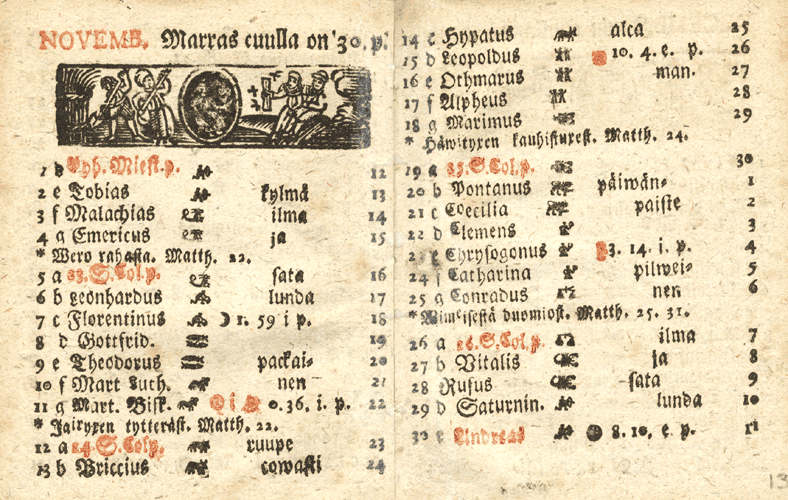 NOVEMB. Marras cuulla on 30. p.
1 d Pyh. Miest. p. 12
2 e Tobias kylmä 13
3 f Malachias ilma 14
4 g Emericus ja 15
* Wero rahasta. Matth. 22.
5 a 23. S. Col. p. sata 16
6 b Leonhardus lunda 17
7 c Florentinus 1. 59 i p. 18
8 d Gottfrid. 19
9 e Theodorus packai- 20
10 f Mart Luth. nen 21
11 g Mart. Bisk. 0. 36. i. p. 22
* Jairyxen tytteräst. Matth. 22.
12 a 24. S. Col p. ruupe 23
13 b Briccius cowasti 24
14 c Hypatus alca 25
15 d Leopoldus 10. 4. e. p. 26
16 e Othmarus man. 27
17 f Alpheus 28
18 g Maximus 29
* Häwityxen kauhistuxest. Matth. 24.
19 a 25. S. Col. p. 30
20 b Pontanus päiwän- 1
21 c Coecilia paiste 2
22 d Clemens 3
23 e Chrysogonus 3. 14. i. p. 4
24 f Catharina pilwei- 5
25 g Conradus nen 6
* Wiimeisestä duomiost. Matth. 25. 31.
26 a 26. S. Col. p. ilma 7
27 b Vitalis ja 8
28 Rufus sata 9
29 d Saturnin. lunda 10
30 e Andreas 8. 10. e. p. 11
13